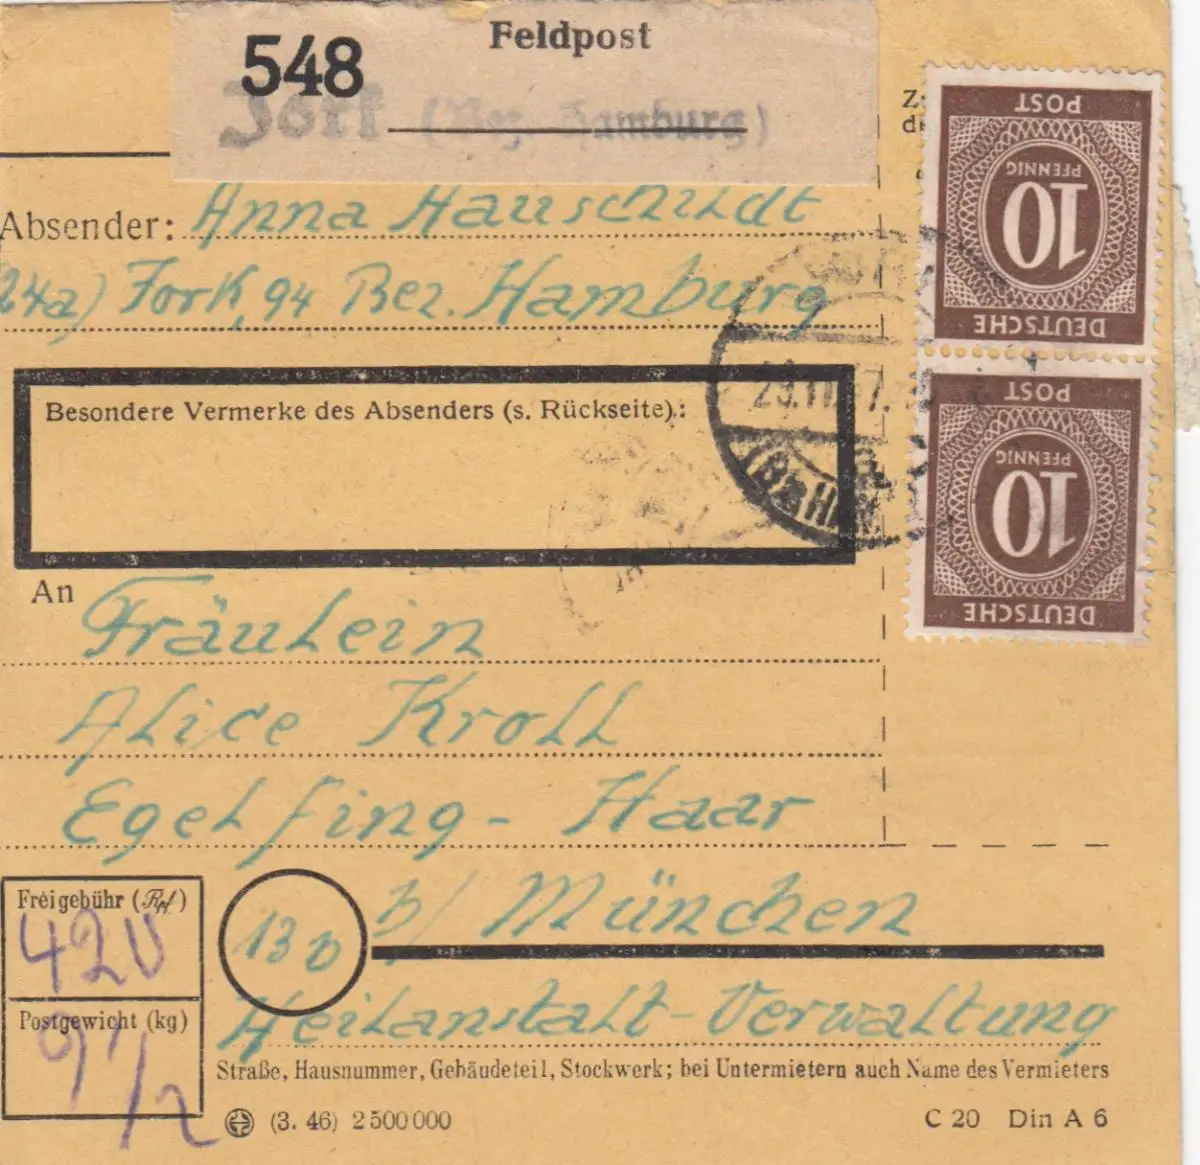 Feldpost
548
Jork (Bez. Hamburg)
Absender: Anna Hauschildt
24a) Jork, 94 Bez. Hamburg
Besondere Vermerke des Absenders (s. Rückseite):
An Fräulein
Alice Kroll
Egelfing-Haar
13b b/ München
Heilanstalt-Verwaltung
Straße, Hausnummer, Gebäudeteil, Stockwerk; bei Untermietern auch Name des Vermieters
Freigebühr (Rpf)
Postgewicht (kg)
9 1/2
(3. 46) 2 500 000
C 20 Din A 6
DEUTSCHE
10
PFENNIG
POST
DEUTSCHE
10
PFENNIG
POST